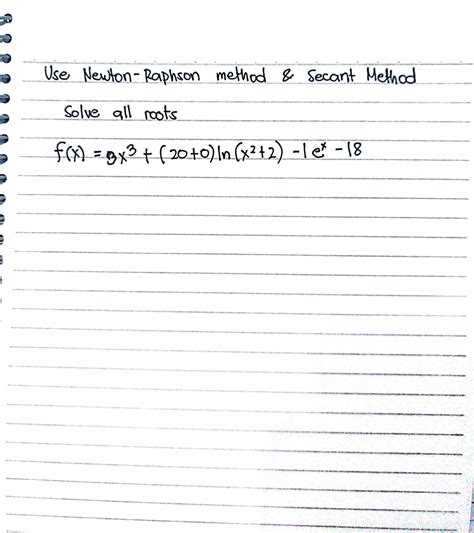 Use Newton-Raphson method & Secant Method
Solve all roots
f(x) = 9x³ + (20+0)ln(x²+2) -1e^x -18